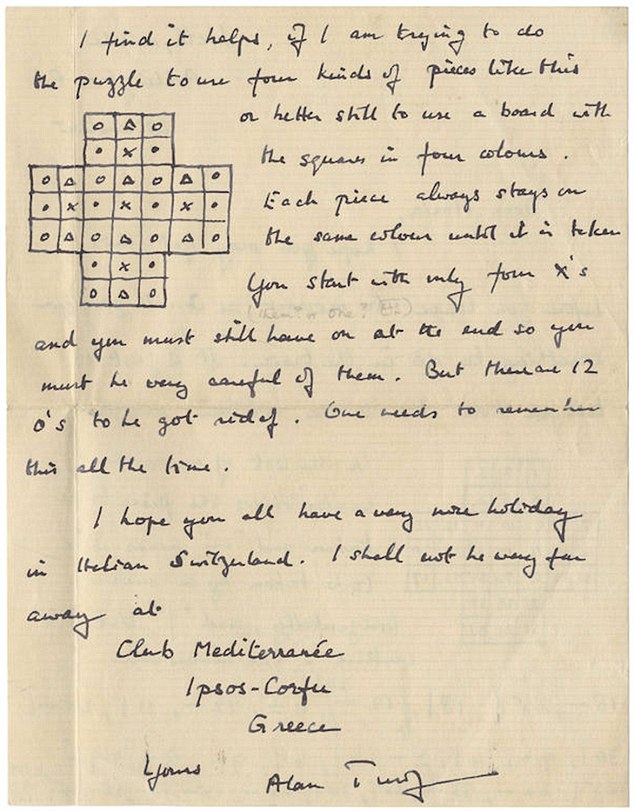 I find it helps, if I am trying to do
the puzzle to use four kinds of pieces like this
or better still to use a board with
the squares in four colours.
Each piece always stays on
the same colour until it is taken
You start with only four X's
and you must still have on at the end so you
must be very careful of them. But there are 12
O's to be got rid of. One needs to remember
this all the time.
I hope you all have a very nice holiday
in Italian Switzerland. I shall not be very far
away at
Club Mediterranée
Ipsos-Corfu
Greece
Yours
Alan Turing